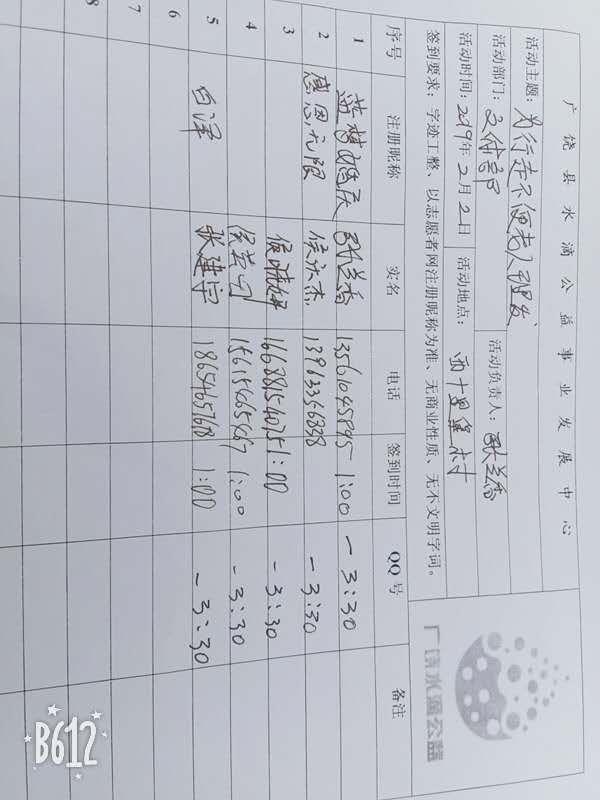 广饶县水滴公益事业发展中心
活动主题：为行走不便老人理发
活动部门：文体部 活动负责人：张兰香
活动时间：2019年2月2日 活动地点：西十里堡村
签到要求：字迹工整、以志愿者网注册昵称为准、无商业性质、无不文明字词。
序号 注册昵称 实名 电话 签到时间 QQ号 备注
1 蓝梦婚庆 张兰香 13561045945 1:00 - 3:30
2 感恩无限 侯庆杰 13963356838 - 3:30
3 16638154075 1:00 - 3:30
4 1:00 - 3:30
5 白泽 张建宇 18654657618 1:00 - 3:30
6
7
8
广饶水滴公益
B612